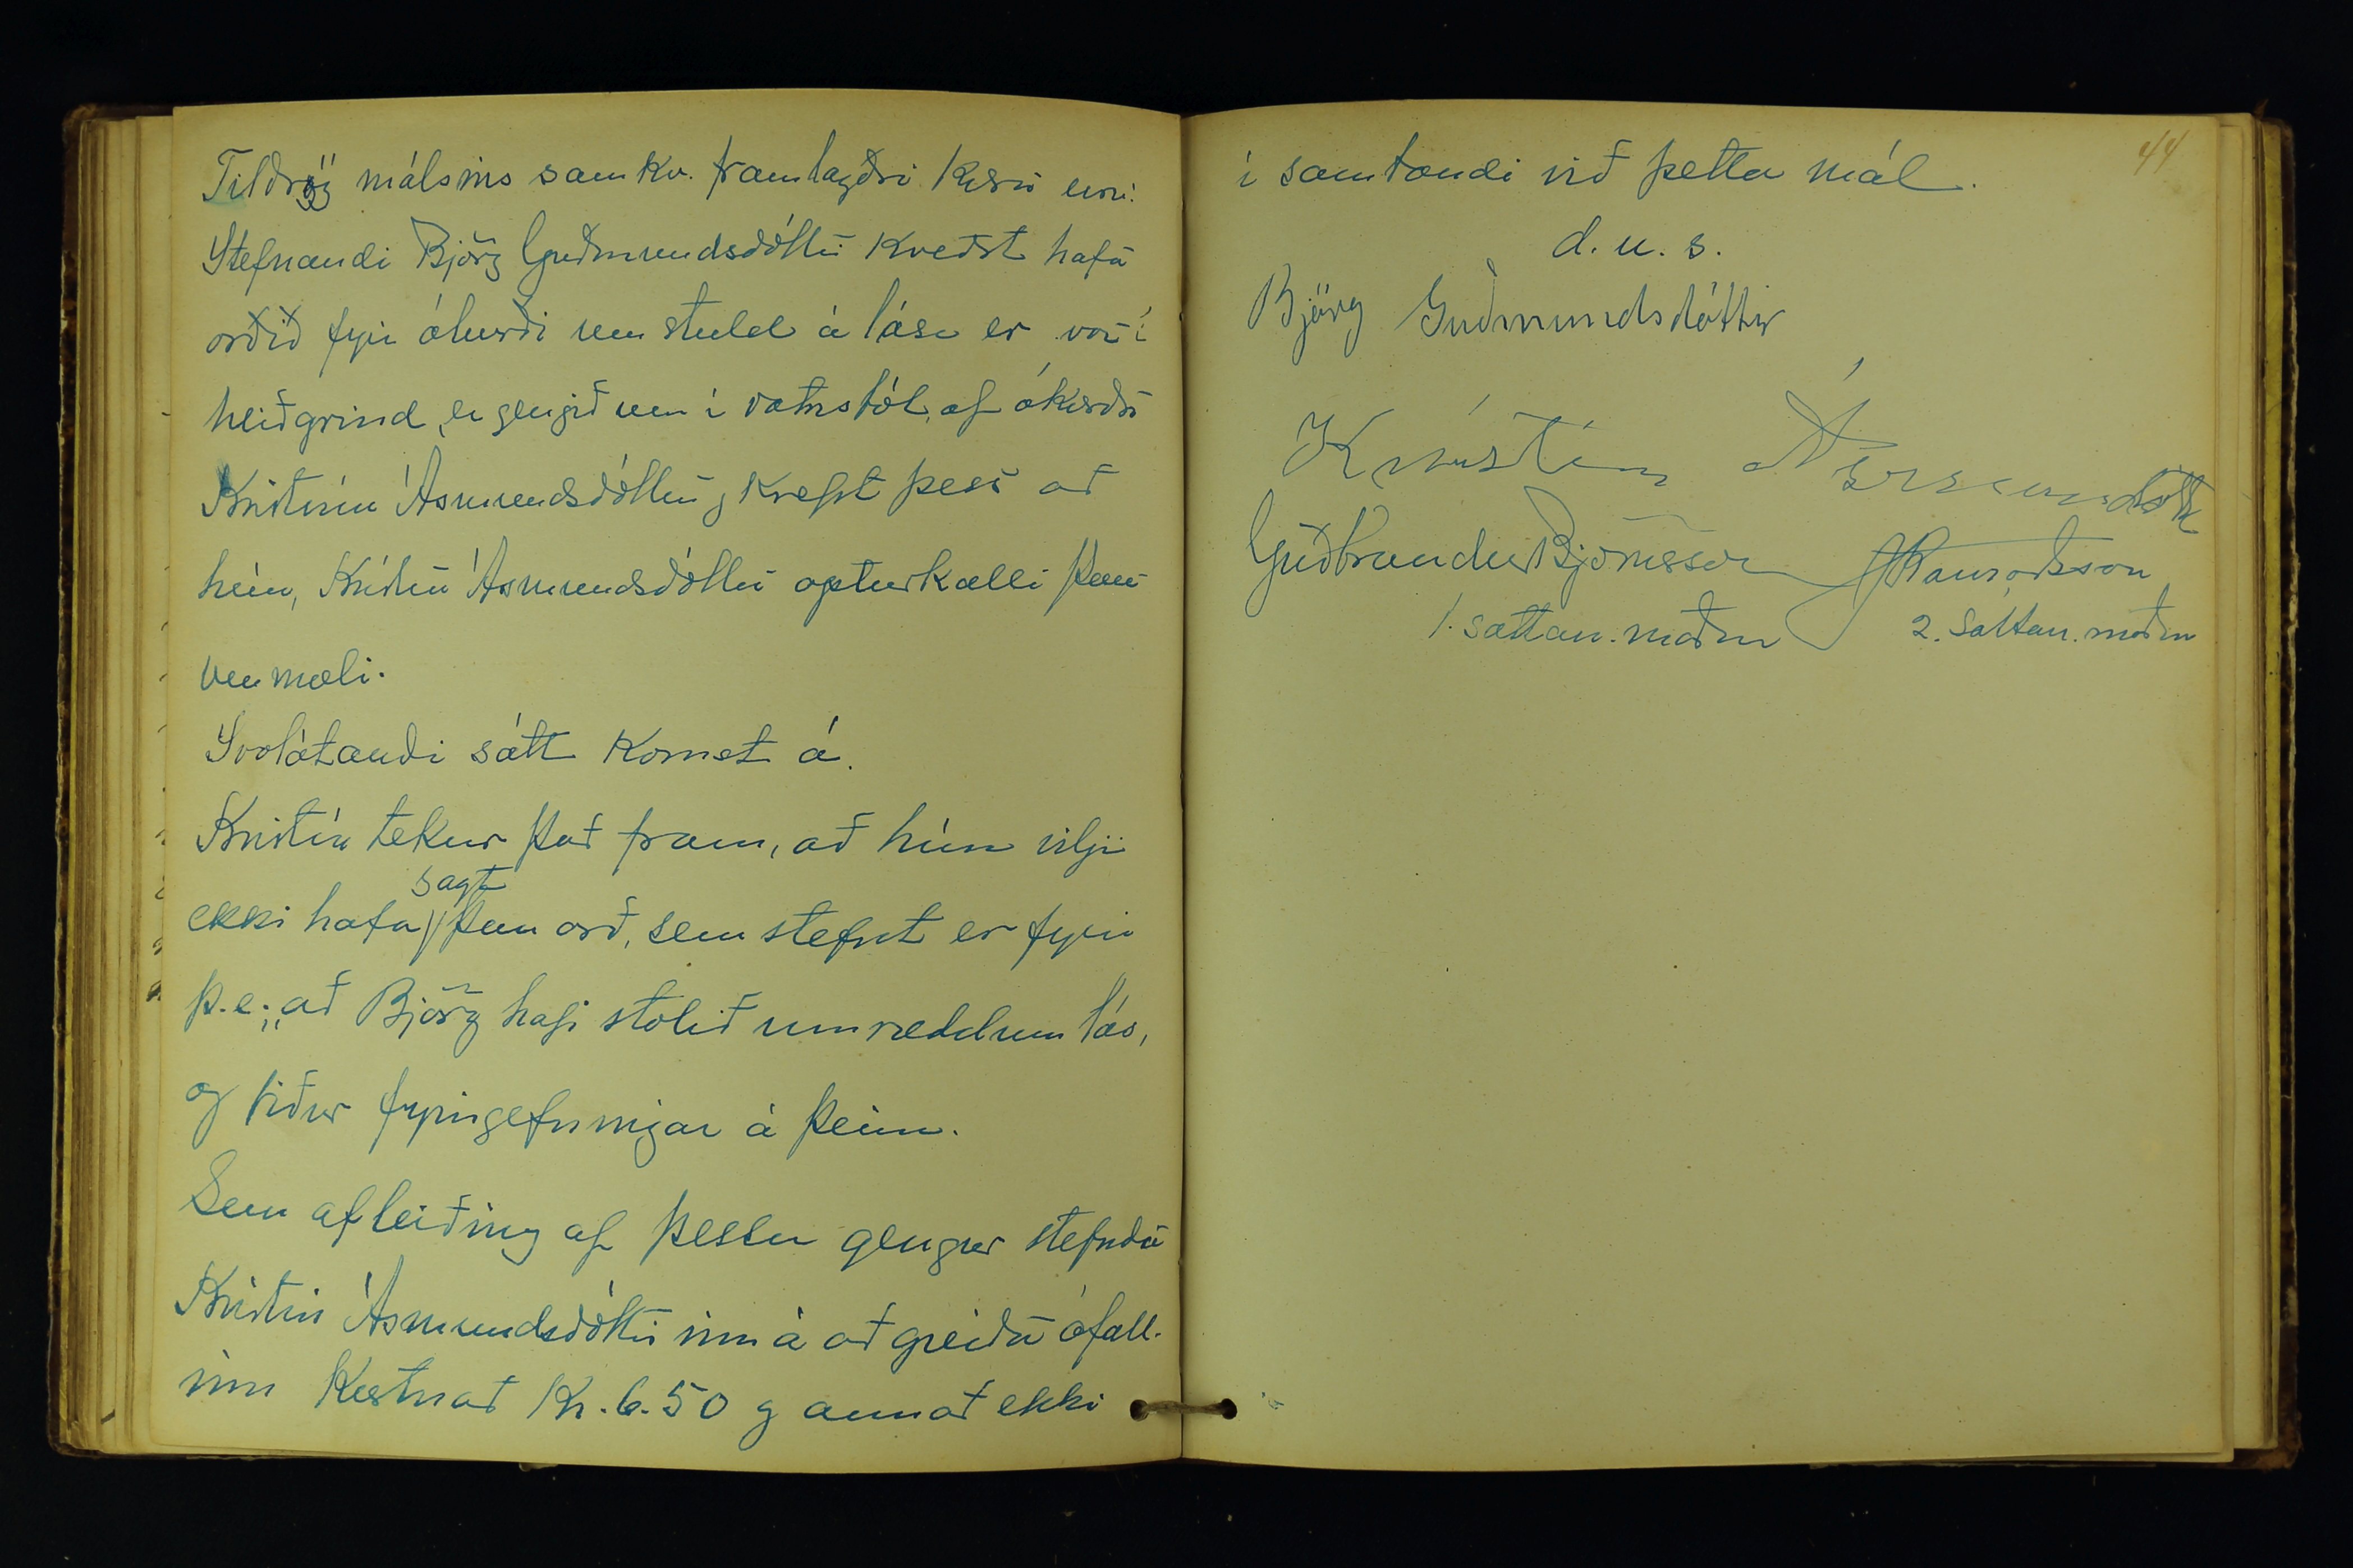 Tildrög málsins samkv. framlagðri kæru eru:
Stefnandi Björg Guðmundsdóttir kveðst hafa
orðið fyrir áburði um stuld á lási er var í
hliðgrind, er gengið um í vatnsból, af ákærðri
Kristínu Ásmundsdóttur, krefst þess að
hún, Kristín Ásmundsdóttir apturkalli þau
ummæli.
Svolátandi sátt komst á.
Kristín tekur það fram, að hún vilji
ekki hafa sagt þau orð, sem stefnt er fyrir
þ.e. „að Björg hafi stolið umræddum lás,
og biður fyrirgefningar á þeim.
Sem afleiðing af þessu gengur stefnda
Kristín Ásmundsdóttir inn á að greiða áfall-
inn kostnað Kr. 6.50 og annað ekki
44
í sambandi við þetta mál.
d. u. s.
Björg Guðmundsdóttir
Kristín Ásmundsdóttir
Guðbrandur Björnsson
1. sáttan. maður 2. sáttan. maður